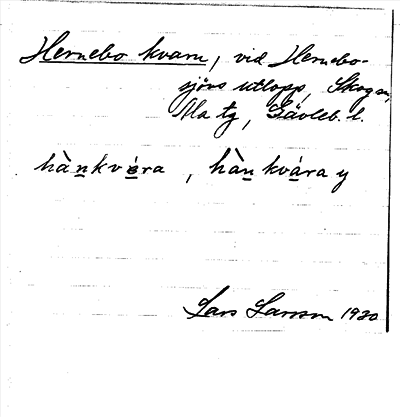 Hernebo kvarn, vid Hernebo-
sjöns utlopp, Skogs,
Ala tg, Gävleb. l.
hànkvára, hàn kvára y
Lars Larsson 1920